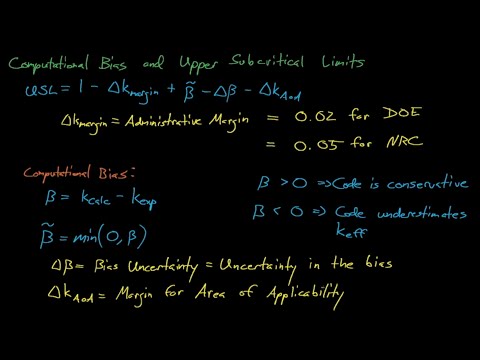 Computational Bias and Upper Subcritical Limits
USL = 1 - Δk_margin + β̃ - Δβ - Δk_AoA
Δk_margin = Administrative Margin = 0.02 for DOE
= 0.05 for NRC
Computational Bias:
β = k_calc - k_exp
β > 0 ⇒ Code is conservative
β < 0 ⇒ Code underestimates
k_eff
β̃ = min(0, β)
Δβ = Bias Uncertainty = Uncertainty in the bias
Δk_AoA = Margin for Area of Applicability